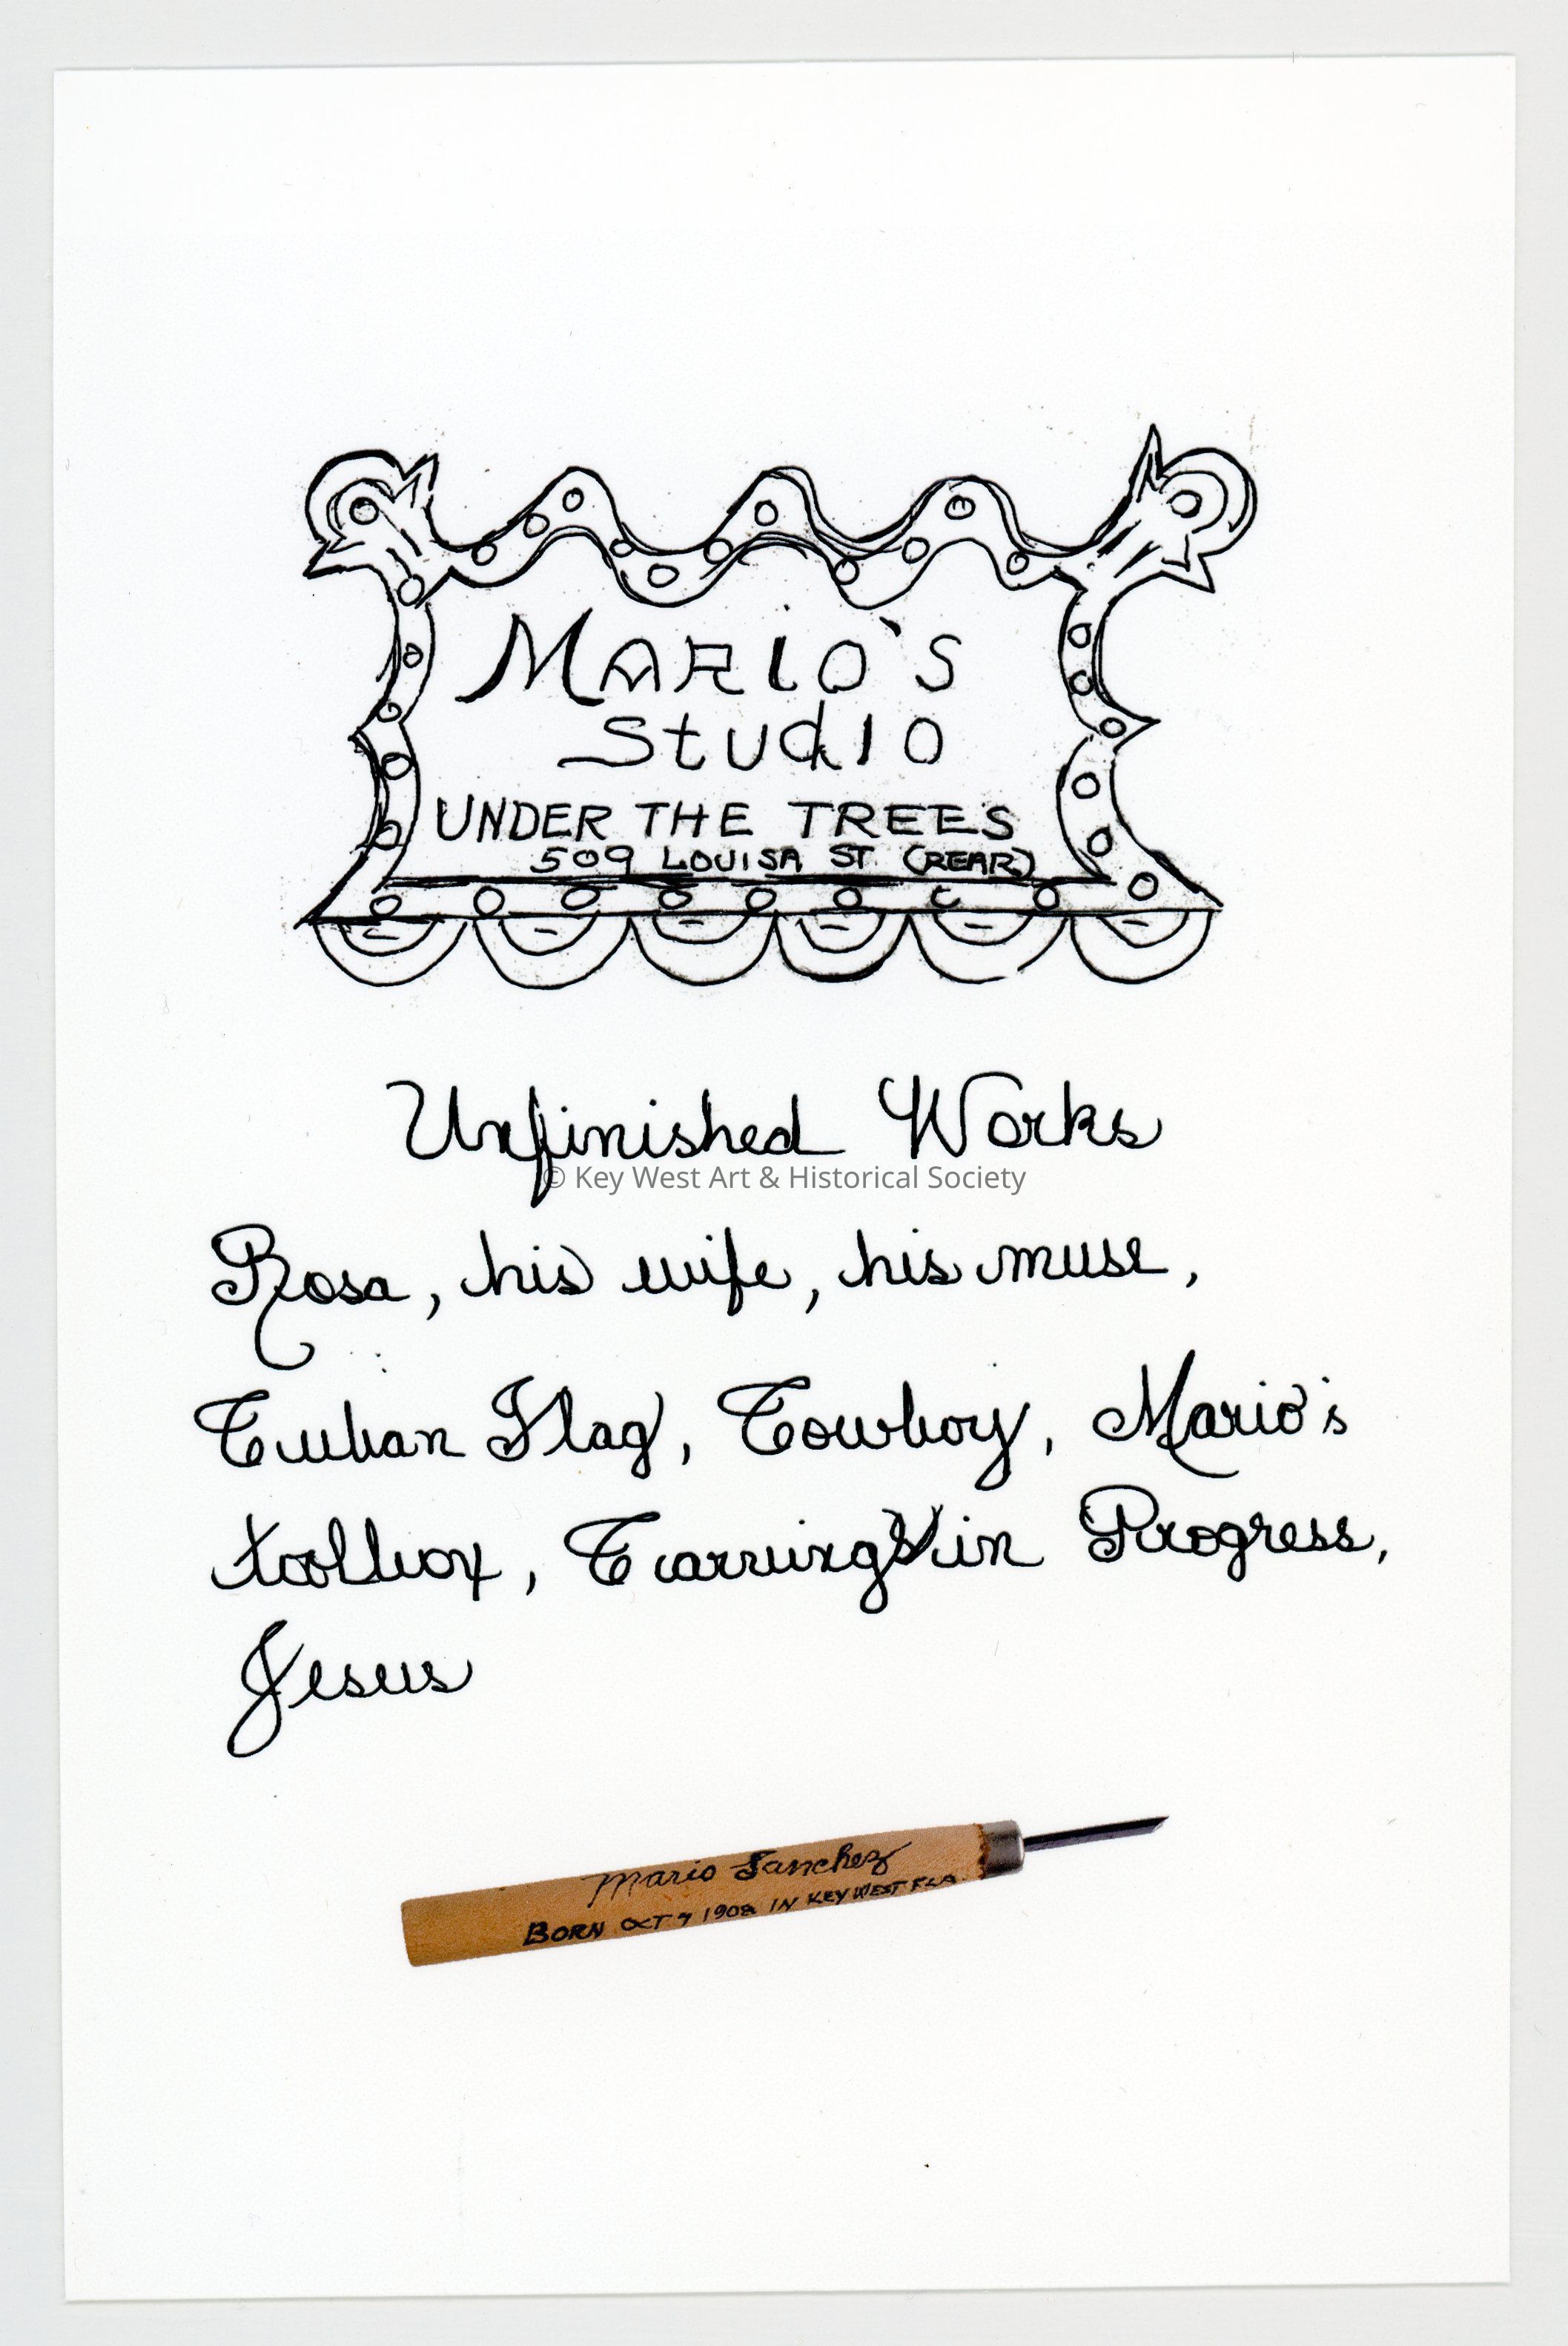 MARIO'S
Studio
UNDER THE TREES
509 LOUISA ST. (REAR)
Unfinished Works
© Key West Art & Historical Society
Rosa, his wife, his muse,
Cuban Flag, Cowboy, Mario's
toolbox, Carvings in Progress,
Jesus
Mario Sanchez
BORN OCT 7 1908 IN KEY WEST FLA.